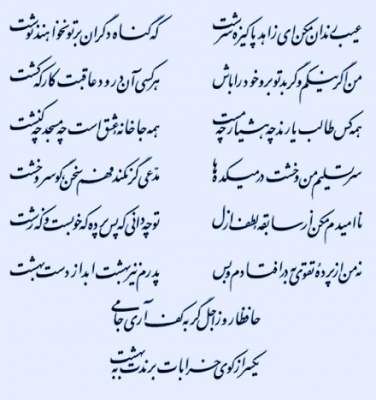 عیب رندان مکن ای زاهد پاکیزه سرشت که گناه دگران بر تو نخواهند نوشت
من اگر نیکم و گر بد تو برو خود را باش هر کسی آن درود عاقبت کار که کشت
همه کس طالب یارند چه هشیار و چه مست همه جا خانهٔ عشق است چه مسجد چه کنشت
سر تسلیم من و خشت در میکده‌ها مدّعی گر نکند فهم سخن گو سر و خشت
ناامیدم مکن از سابقهٔ لطف ازل تو چه دانی که پس پرده که خوبست و که زشت
نه من از پردهٔ تقوی به در افتادم و بس پدرم نیز بهشت ابد از دست بهشت
حافظا روز اجل گر به کف آری جامی
یکسر از کوی خرابات برندت به بهشت